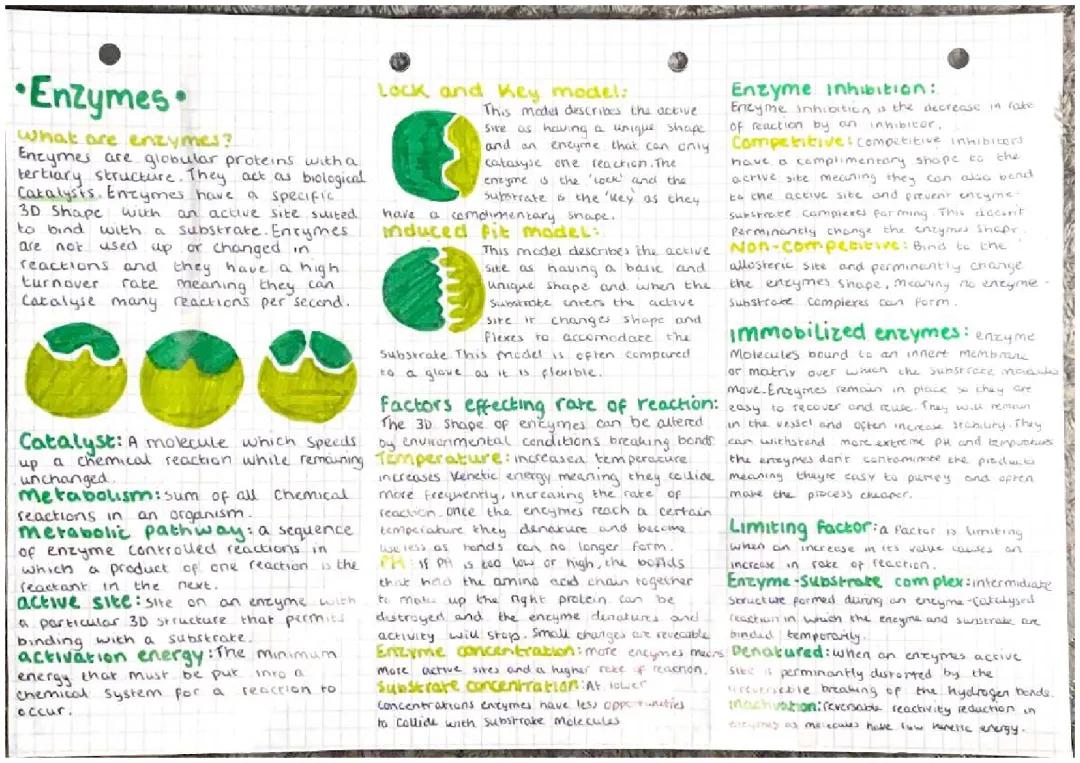 •Enzymes•
What are enzymes?
Enzymes are globular proteins with a
tertiary structure. They act as biological
Catalysts. Enzymes have a specific
3D shape with an active site suited
to bind with a substrate. Enzymes
are not used up or changed in
reactions and they have a high
turnover rate meaning they can
catalyse many reactions per second.
Catalyst: A molecule which speeds
up a chemical reaction while remaining
unchanged.
Metabolism: Sum of all Chemical
reactions in an organism.
Metabolic pathway: a sequence
of enzyme controlled reactions in
which a product of one reaction is the
reactant in the next.
active site: Site on an enzyme with
a particular 3D structure that permits
binding with a substrate.
activation energy: The minimum
energy that must be put into a
chemical system for a reaction to
occur.
Lock and Key model:
This model describes the active
site as having a unique shape
and an enzyme that can only
catalyse one reaction. The
enzyme is the 'lock' and the
substrate is the 'key' as they
have a complimentary shape.
Induced fit model:
This model describes the active
site as having a basic and
unique shape and when the
substrate enters the active
site it changes shape and
flexes to accomodate the
substrate. This model is often compared
to a glove as it is flexible.
Factors effecting rate of reaction:
The 3D shape of enzymes can be altered
by environmental conditions breaking bonds
Temperature: increased temperature
increases kenetic energy meaning they collide
more frequently, increasing the rate of
reaction. Once the enzymes reach a certain
temperature they denature and become
useless as bonds can no longer form.
PH: if PH is too low or high, the bonds
that hold the amino acid chain together
to make up the right protein can be
distroyed and the enzyme denatures and
activity will stop. Small changes are
Enzyme concentration: more enzymes means
more active sites and a higher rate of reaction.
Substrate concentration: At lower
concentrations enzymes have less opportunities
to collide with substrate molecules
Enzyme inhibition:
Enzyme inhibition is the decrease in rate
of reaction by an inhibitor.
Competitive: Competitive inhibitors
have a complimentary shape to the
active site meaning they can also bond
to the active site and prevent enzyme-
substrate complexes forming. This doesn't
perminantly change the enzymes shape.
Non-competitive: Bind to the
allosteric site and perminantly change
the enzymes shape, meaning no enzyme-
substrate complexes can form.
Immobilized enzymes: enzyme
Molecules bound to an innert membrane
or matrix over which the substrate molecules
move. Enzymes remain in place so they are
easy to recover and reuse. They will remain
in the vessel and often increase stability. They
can withstand more extreme PH and temperatures
the enzymes don't contaminate the products
meaning theyre easy to purify and often
make the process cheaper.
Limiting factor: a factor is limiting
when an increase in its value causes an
increase in rate of reaction.
Enzyme-Substrate complex: intermidiate
structure formed during an enzyme-catalysed
reaction in which the enzyme and substrate are
binded temporarily.
Denatured: When an enzymes active
site is perminantly distorted by the
irreversible breaking of the hydrogen bonds.
Inactivation: reversable reactivity reduction in
enzymes as molecules have low kinetic energy.